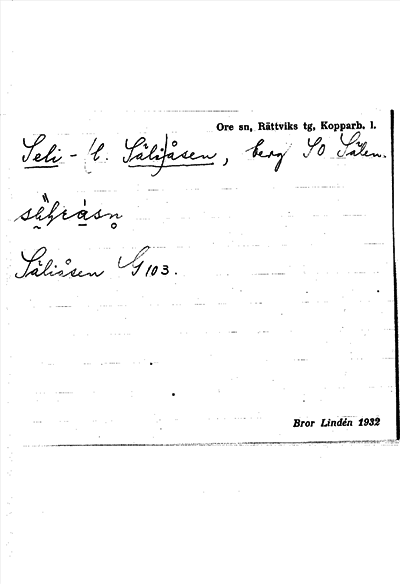 Ore sn, Rättviks tg, Kopparb. l.
Seli- (l. Säli)åsen, berg SO Sälen.
Säliåsen G 103.
Bror Lindén 1932